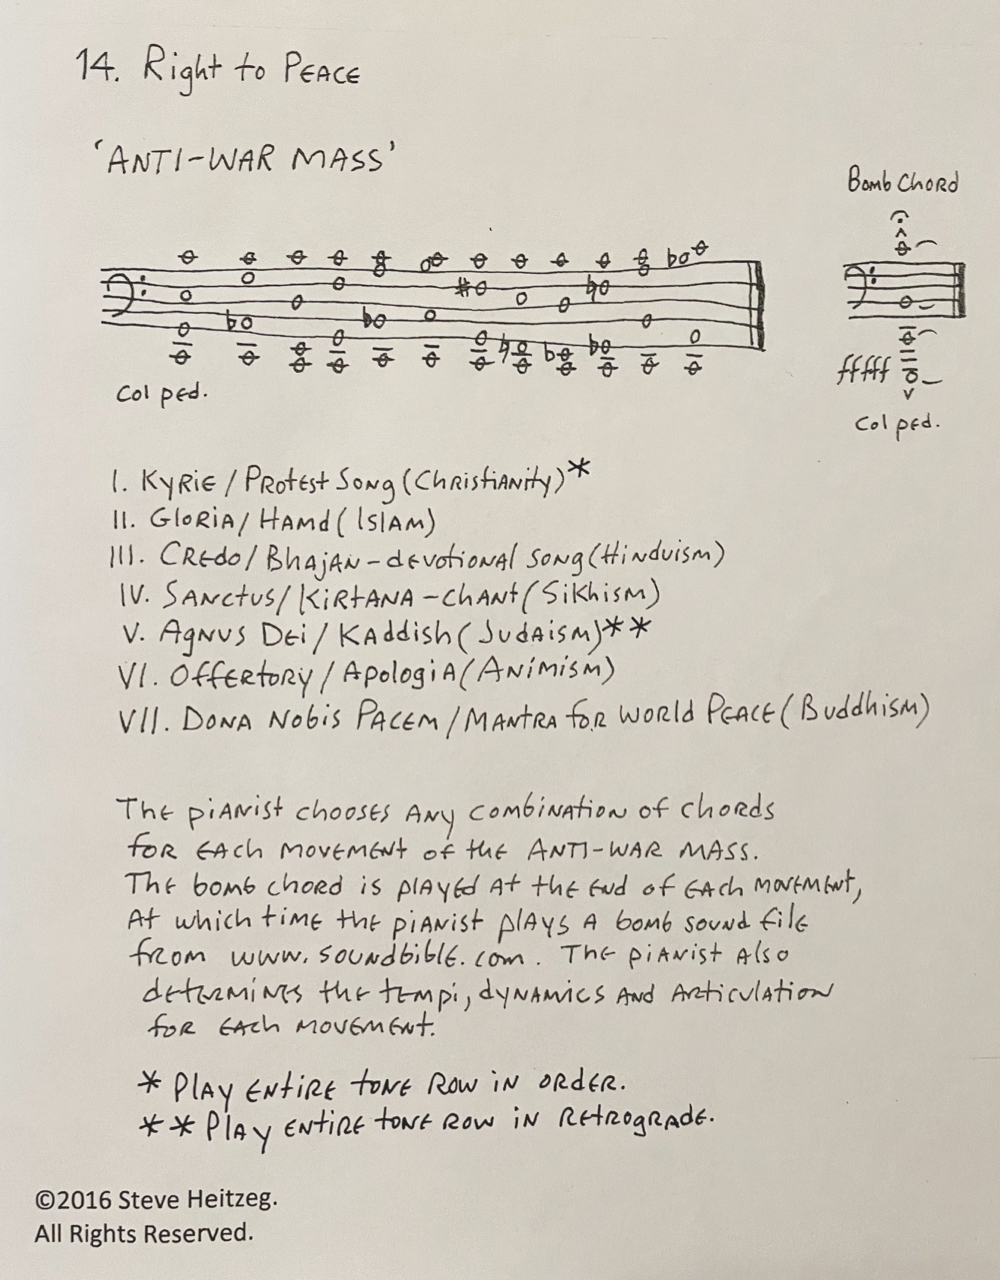 14. Right to PEACE
'ANTI-WAR MASS'
Bomb Chord
fffff
Col ped.
Col ped.
I. KYRIE / PROTEST SONG (CHRISTIANITY)*
II. GLORIA / HAMD (ISLAM)
III. CREDO / BHAJAN - devotional song (Hinduism)
IV. SANCTUS / KIRTANA - chant (Sikhism)
V. AGNUS DEI / KADDISH (JUDAISM)**
VI. OFFERTORY / APOLOGIA (ANIMISM)
VII. DONA NOBIS PACEM / MANTRA for WORLD PEACE (Buddhism)
The pianist chooses any combination of chords
for each movement of the ANTI-WAR MASS.
The bomb chord is played at the end of each movement,
At which time the pianist plays a bomb sound file
from www.soundbible.com. The pianist also
determines the tempi, dynamics and articulation
for each movement.
* Play entire tone row in order.
** Play entire tone row in retrograde.
©2016 Steve Heitzeg.
All Rights Reserved.